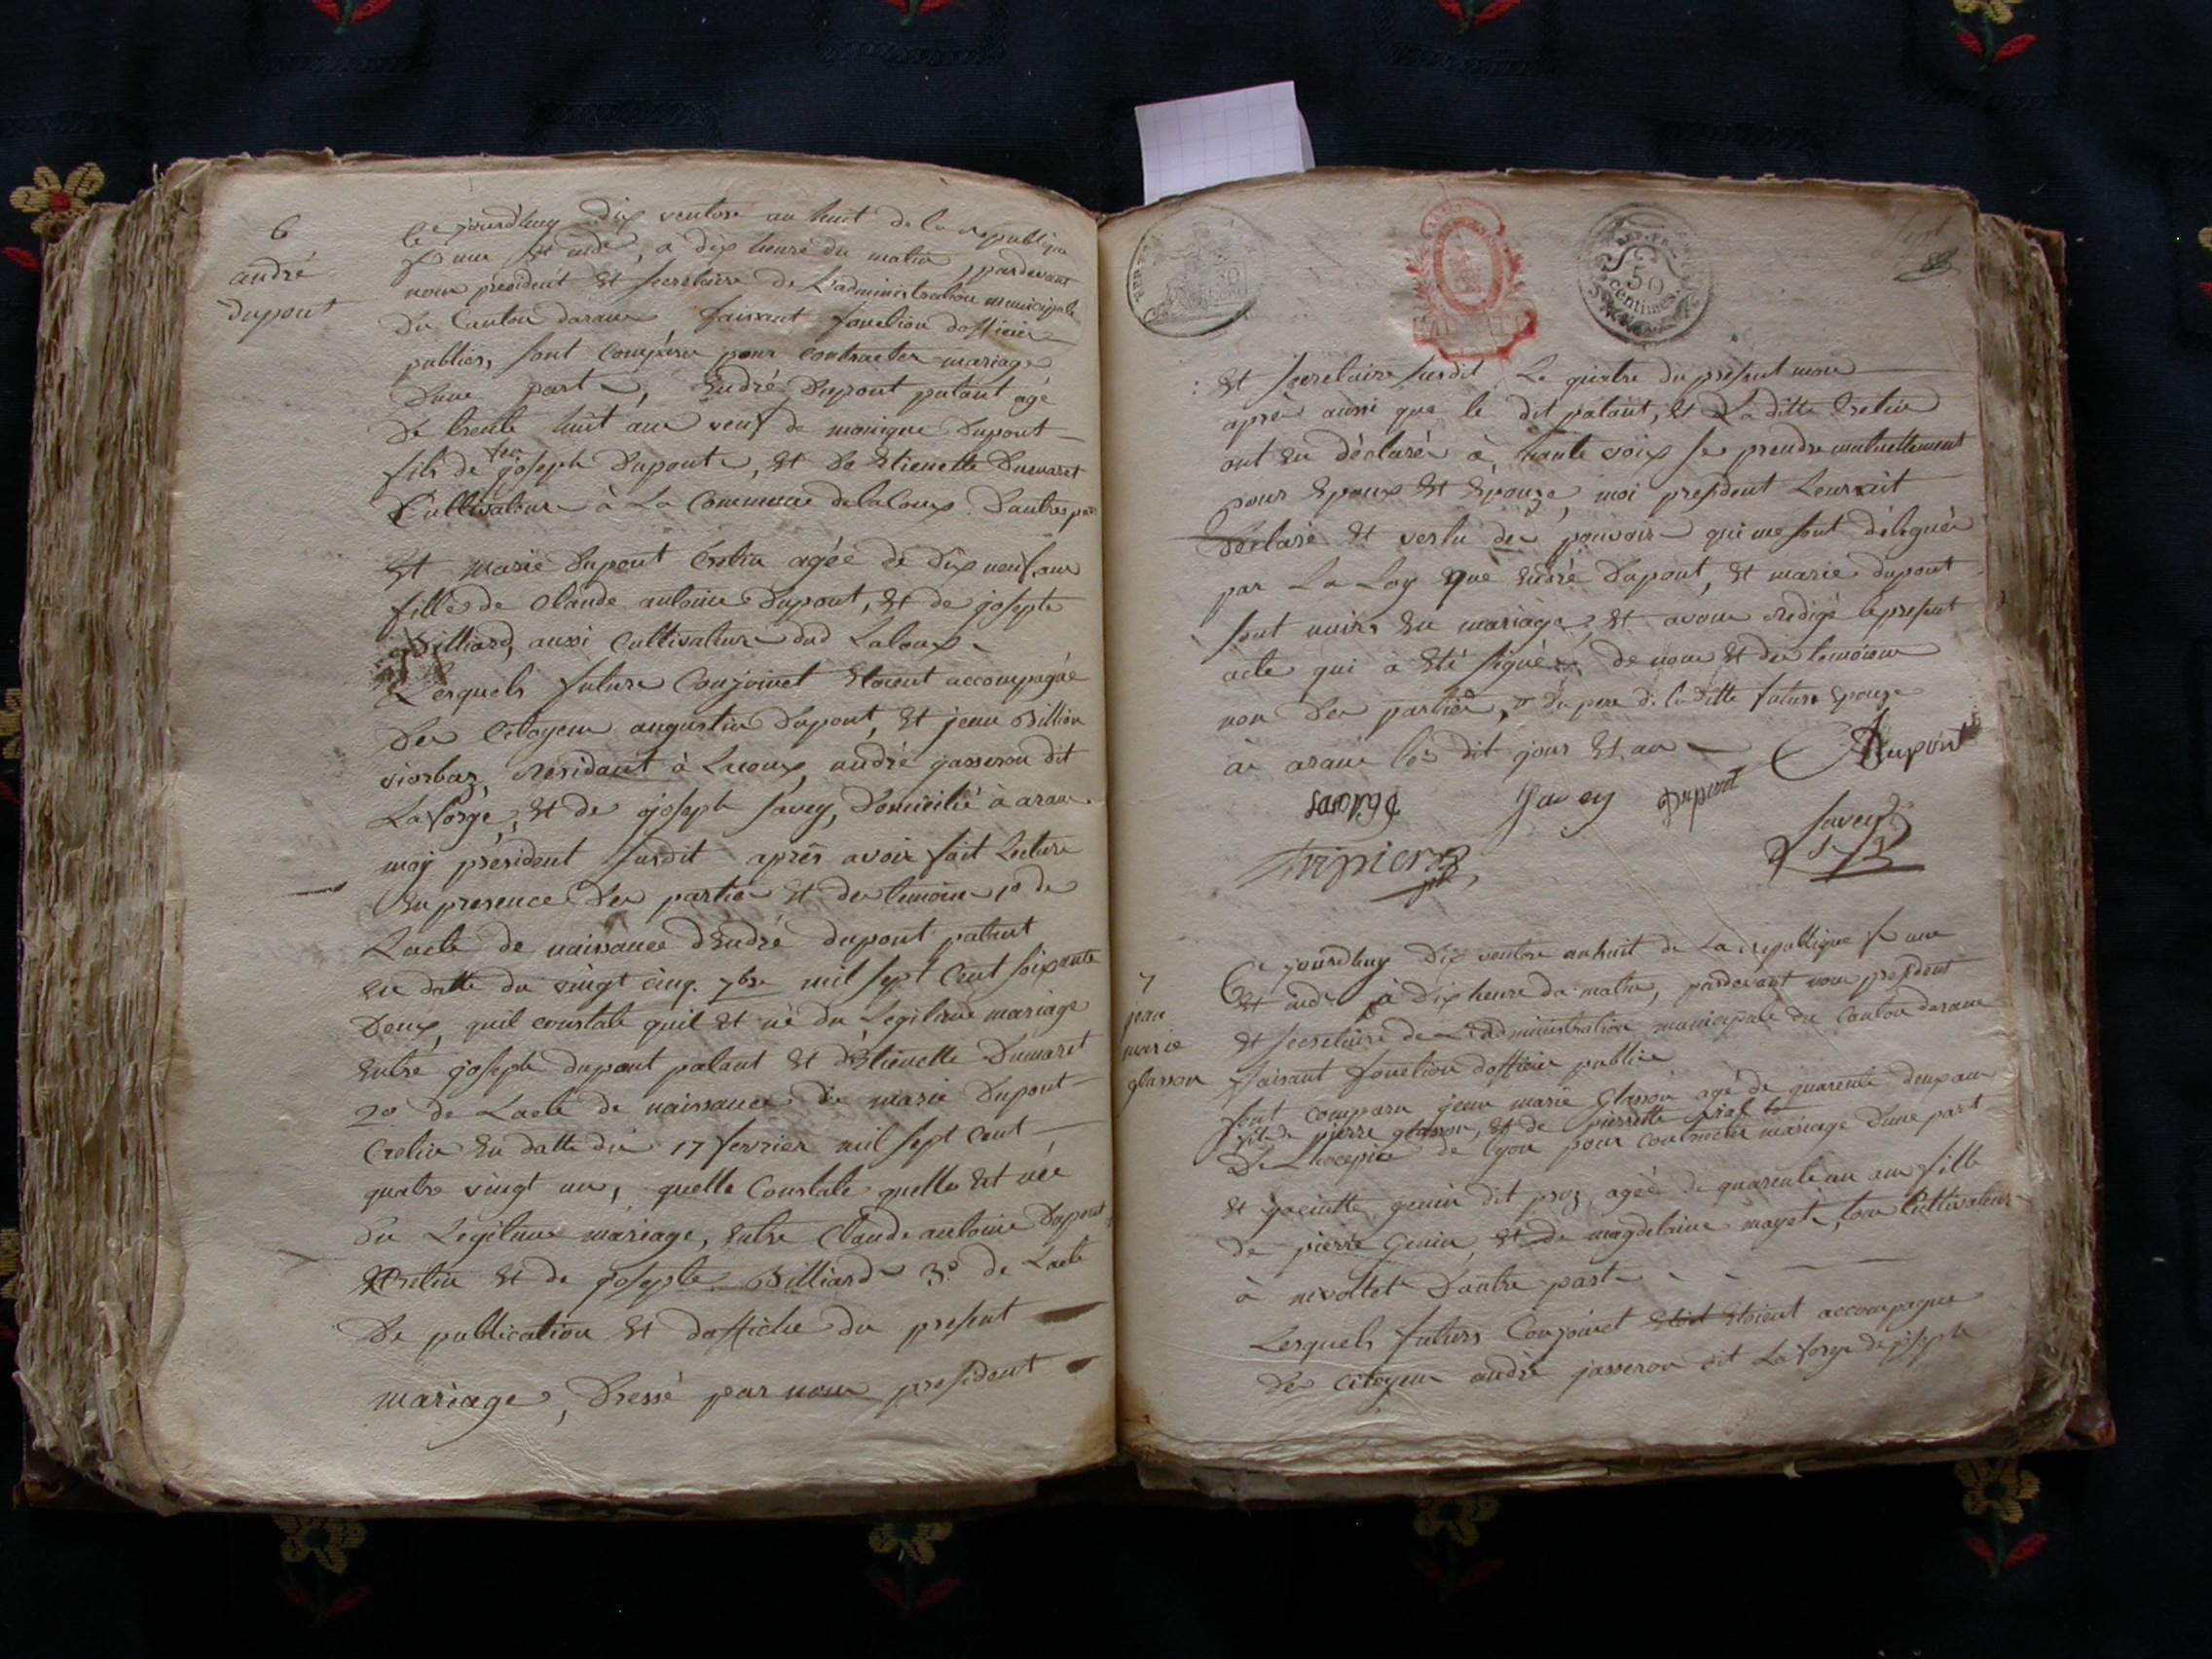 6
andré
dupont
Ce jourdhuy dix ventose an huit de la republique
f. une et indé, à dix heure du matin, pardevant
nous président et secretaire de L'administration municipale
du Canton daranc, faisant fonction dofficier
publics, sont comparu pour contracter mariage
Dune part, André Dupont patant âgé
De trente huit ans veuf de monique Dupont
fils de feu joseph Dupont, et de Etienette Dumaret
Cultivateur à La Commune delaCoux Dautres part
Et marie Dupont Cretin agée de dix neuf ans
fille de Claude antoine Dupont, et de josepte
Billiard, aussi Cultivateurs dud Lacoux
Lesquels futurs Conjoinct Etoient accompagné
Des Citoyens augustin Dupont, et jean Billion
viorbaz, résidant à Lacoux, andré gasseron dit
Laforge, et de joseph Savey, Domicilié à aranc.
moy président susdit après avoir fait Lecture
En presence des parties et des temoins 1º de
Lacte de naissance dEndré dupont patant
en datte du vingt cinq 7bre mil sept Cent soixante
Deux, quil constate quil Et né du Legitime mariage
Entre joseph dupont patant et dEtienette Dumaret
2º de Lacte de naissance de marie Dupont
Cretin en datte du 17 fevrier mil sept Cent
quatre vingt un, quelle Constate quelle Et née
du Legitime mariage, Entre Claude antoine Dupont
Cretin et de josepte Billiard 3º de Lacte
De publication et daffiche du present
mariage, Dressé par nous president
REP. FRA.
50
centimes
Et secretaire susdit Le quatre du present mois
après aussi que le dit patant, et La ditte Cretin
ont eu déclarés à haute voix se prendre mutuellement
pour Epoux et Epouze, moi president Leurs ait
Déclaré et vertu des pouvoir qui me sont délegués
par La Loy que Endré Dupont, et marie dupont
sont unirs en mariage, et avons redigé le present
acte qui à Eté signé de nous et des temoins
non des parties, du pere de la ditte future Epouze
à aranc les dit jour et an
Savey Dupont Dupont
Tripier
Savey
7
jean
marie
glasson
Ce jourdhuy Dix ventose an huit de La republique f. une
et indé à Dix heure du matin, pardevant nous president
et secretaire de L'administration municipale du Canton daranc
faisant fonction dofficier publics
sont comparu jean marie Glasson agé de quarente deux ans
fils de pierre glasson, et de pierrette
De Lhocepice de lyon pour Contracter mariage Dune part
et jacintte genin dit proz, agée de quarente un ans fille
de pierre Genin, et de magdelaine mayet, tous Cultivateurs
à nivollet Dautre part
Lesquels futurs Conjoinct Etoient accompagnés
Des Citoyens andré jasseron dit Laforge de joseph